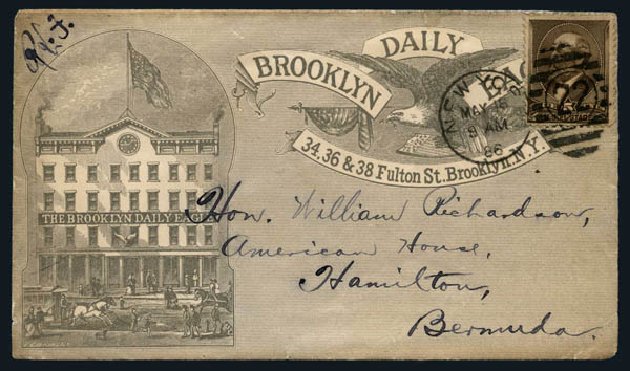 BROOKLYN DAILY EAG
34, 36 & 38 Fulton St. Brooklyn. N.Y.
NEW YOR
MAY 15
9 AM
86
22
THE BROOKLYN DAILY EAGL
Hon. William Richardson,
American House,
Hamilton,
Bermuda.